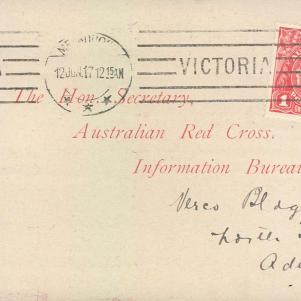 12 JUN. 17 12.15AM
VICTORIA
The Hon. Secretary,
Australian Red Cross.
Information Bureau
Verco Bldg
North
Ade